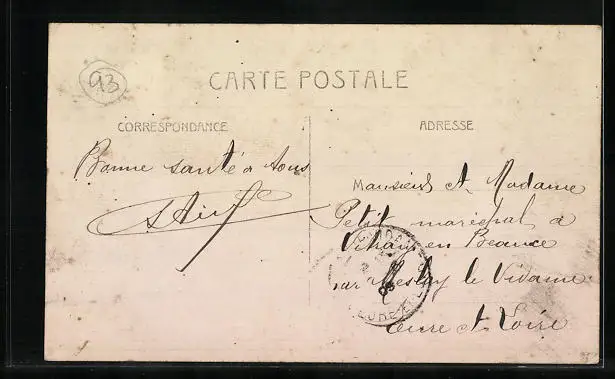 93
CARTE POSTALE
CORRESPONDANCE
ADRESSE
Bonne santé a tous
Monsieur et Madame
Petit marechal a
Vitray en Beauce
par Meslay le Vidame
Eure et Loire